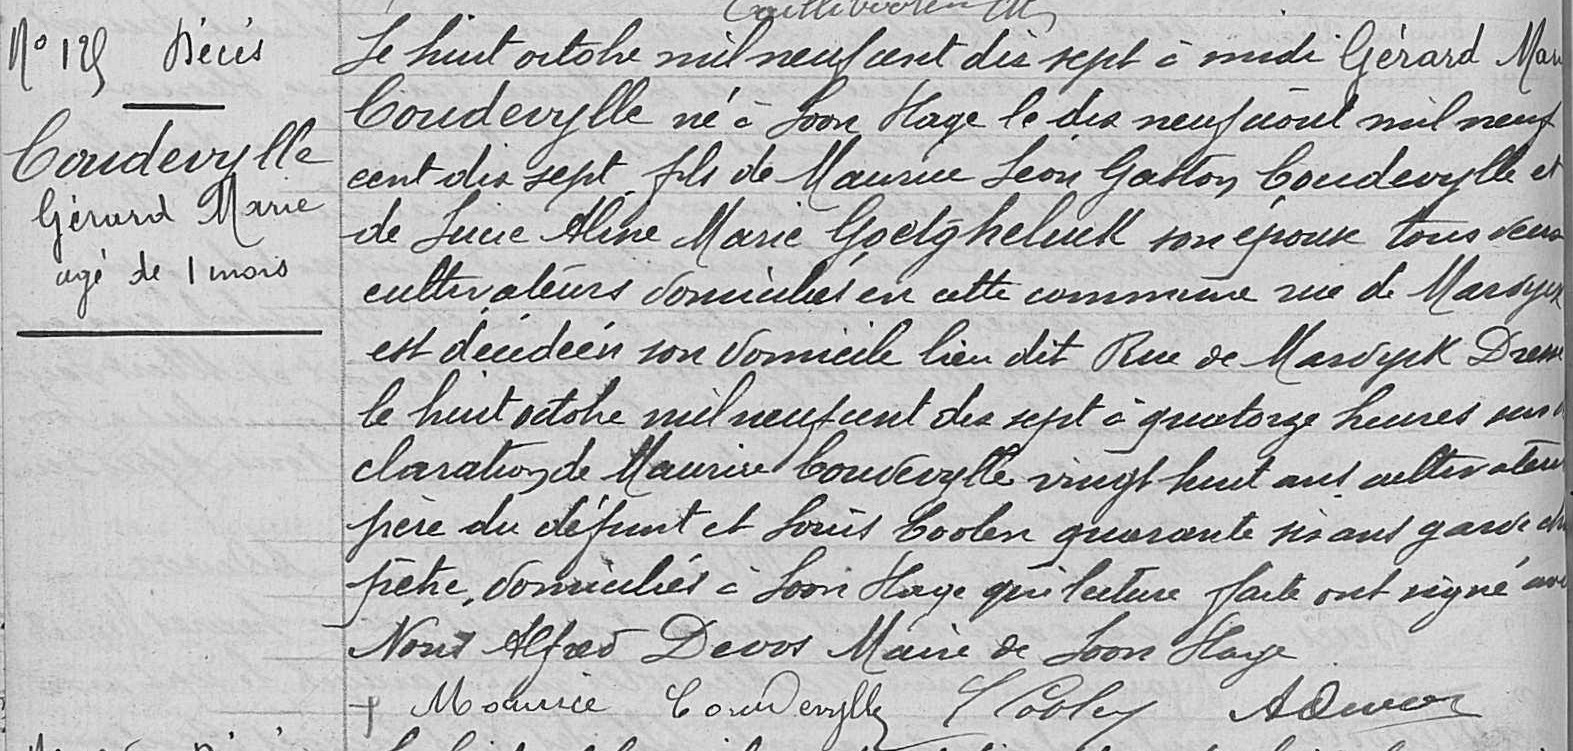 N° 125 Décès
Coudevylle
Gérard Marie
agé de 1 mois
Le huit octobre mil neuf cent dix sept à midi Gérard Marie
Coudevylle né à Loon Plage le dix neuf août mil neuf
cent dix sept fils de Maurice Léon Gaston Coudevylle et
de Lucie Aline Marie Goetgheluck son épouse tous deux
cultivateurs domiciliés en cette commune rue de Mardyck
est décédé en son domicile lieu dit Rue de Mardyck Dressé
le huit octobre mil neuf cent dix sept à quatorze heures sur
claration de Maurice Coudevylle vingt huit ans cultivateur
père du défunt et Louis Coolen quarante six ans garde
pêtre, domiciliés à Loon Plage qui lecture faite ont signé avec
Nous Alfred Devos Maire de Loon Plage
Maurice Coudevylle L Coolen A Devos